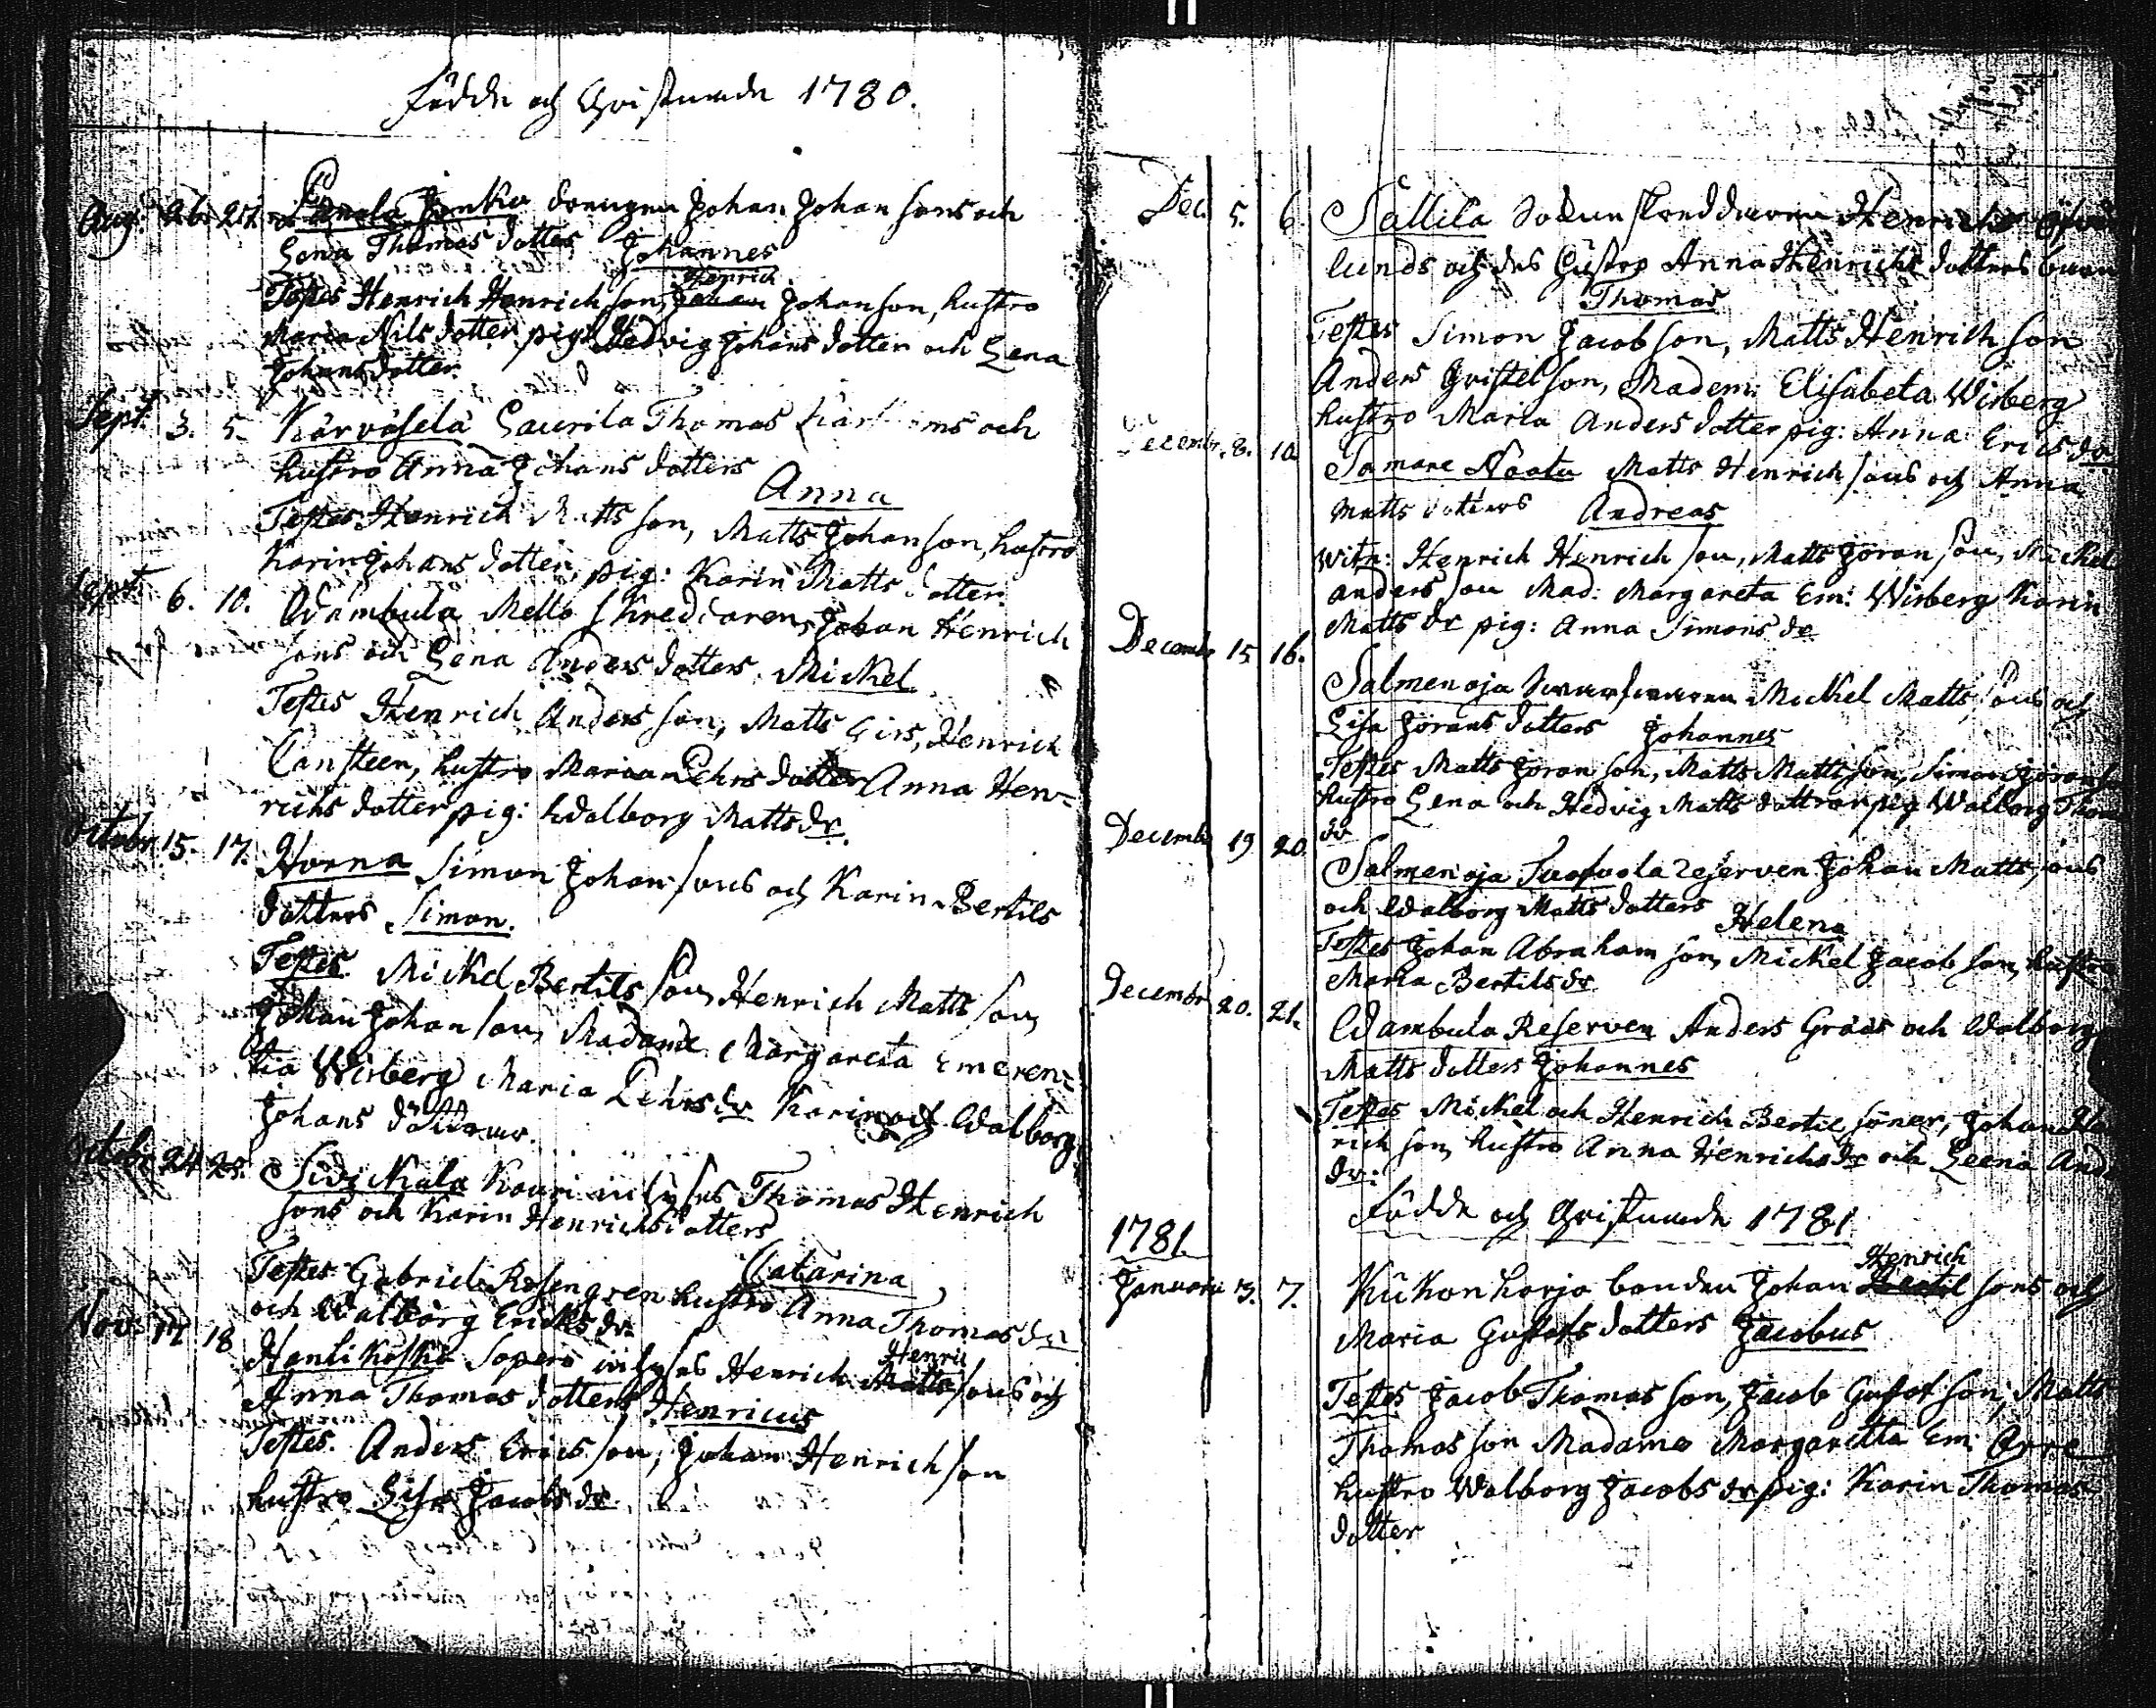 Födde och Christnade 1780.
Aug: 26. 27. Junko drengen Johan Johansons och
Lena Thomas dotters Johannes
Henrich
Testes Henrich Henrichson, Johan Johanson, hustro
Maria Nils dotter pig: Hedvig Johans dotter och Lena
Johans dotter.
Sept. 3. 5. Kärväselä Laurila Thomas och
hustro Anna Johans dotters
Anna
Testes Henrich Matts son, Matts Johanson, hustro
Karin Johans dotter, pig: Karin Matts dotter.
Sept. 6. 10. Wambula Mello skreddaren Johan Henrich
sons och Lena Anders dotters Mickel
Testes Henrich Anders son, Matts Henrich
Cansteen, hustro Maria Pehrs dotter Anna Hen=
richs dotter pig: Walborg Matts dr.
Octobr. 15. 17. Horna Simon Johansons och Karin Bertils
dotters Simon.
Testes Mickel Bertils son, Henrich Matts son,
Johan Johan son, Madame Margareta Emeren=
tia Wisberg Maria Pehrs dr Karin och Walborg
Johans döttrar.
Octobr. 24 25. Kouri inhyses Thomas Henrich
sons och Karin Henrichs dotters
Catarina
Testes Gabriel Rosengren hustro Anna Thomas dr
och Walborg Erichs dr
Nov: 17 18 Henli Koski inhyses Henrich Matts sons och
Henric
Anna Thomas dotters Henricus
Testes. Anders Erics son, Johan Henrich son
hustro Lisa Jacobs dr.
Dec. 5. 6. Sallila Sokun skreddaren Henrichs
lunds och des hustro Anna Henrichs dotters barn
Thomas
Testes Simon Jacob son, Matts Henrich son
Anders Christel son, Madem: Elisabeta Wisberg
hustro Maria Anders dotter pig: Anna Erics dr
Decembr. 8. 10 Matts Henrich sons och Anna
Matts dotters Andreas
Witn: Henrich Henrich son, Matts Jöran son, Mickel
anders son Mad: Margareta Em: Wisberg Karin
Matts dr pig: Anna Simons dr
Decembr 15 16. Salmenoja Mickel Matts sons och
Lisa Jörans dotters Johannes
Testes Matts Jöran son, Matts Matts son, Simon Jöran s
hustro Lena och Hedvig Matts döttrar pig Walborg Thom
dr
Decembr 19 20. Salmenoja reserven Johan Matts sons
och Walborg Matts dotters Helena
Testes Johan Abraham son, Mickel Jacob son, hustro
Maria Bertils dr
Decembr 20. 21. Wambula Reserven Anders Gråås och Walborg
Matts dotters Johannes
Testes Mickel och Henrich Bertil söner, Johan Hen
rich son, hustro Anna Henrichs dr och Leena And.
dr:
Födde och Christnade 1781
1781
Henrich
Januarii 3. 7. Kukonharja bonden Johan Bertil sons och
Maria Gustafs dotters Jacobus
Testes Jacob Thomas son, Jacob Gustaf son, Matts
Thomas son Madame Margaretta Em:
hustro Walborg Jacobs dr pig: Karin Thomas
dotter